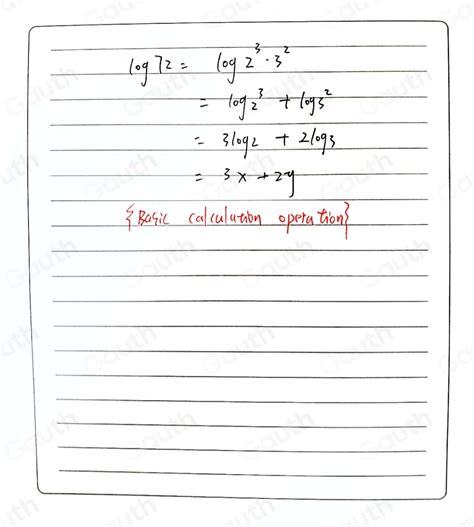 log 72 = log 2³ · 3²
= log 2³ + log 3²
= 3 log 2 + 2 log 3
= 3x + 2y
{Basic calculation operation}